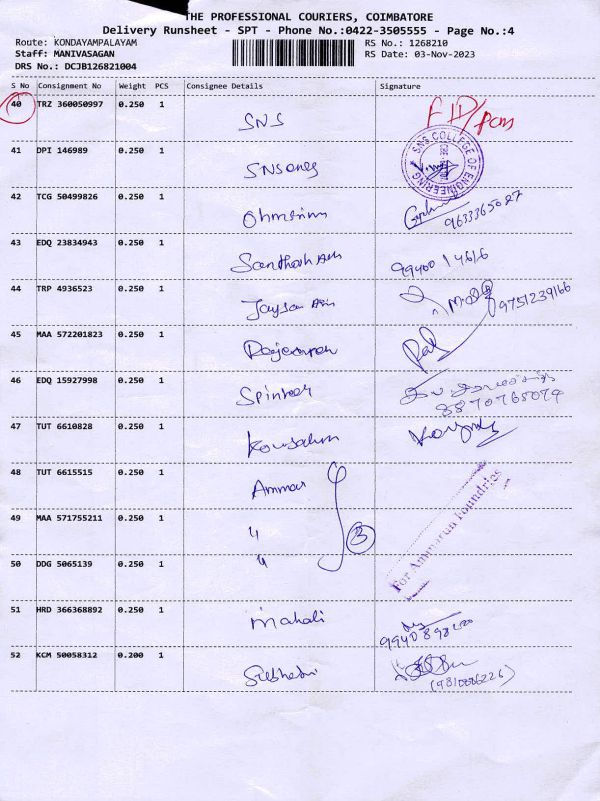 THE PROFESSIONAL COURIERS, COIMBATORE
Delivery Runsheet - SPT - Phone No.:0422-3505555 - Page No.:4
Route: KONDAYAMPALAYAM RS No.: 1268210
Staff: MANIVASAGAN RS Date: 03-Nov-2023
DRS No.: DCJB126821004
S No Consignment No Weight PCS Consignee Details Signature
40 TRZ 360050997 0.250 1 SNS
41 DPI 146989 0.250 1 SNS COLLEGE OF ENGINEERING
42 TCG 50499826 0.250 1
43 EDQ 23834943 0.250 1 Santhosh 99400 14616
44 TRP 4936523 0.250 1 9751239166
45 MAA 572201823 0.250 1
46 EDQ 15927998 0.250 1 8870765079
47 TUT 6610828 0.250 1
48 TUT 6615515 0.250 1 Ammar
49 MAA 571755211 0.250 1 " 3 For Ammarun Foundries
50 DDG 5065139 0.250 1 "
51 HRD 366368892 0.250 1 Mahali
52 KCM 50058312 0.200 1